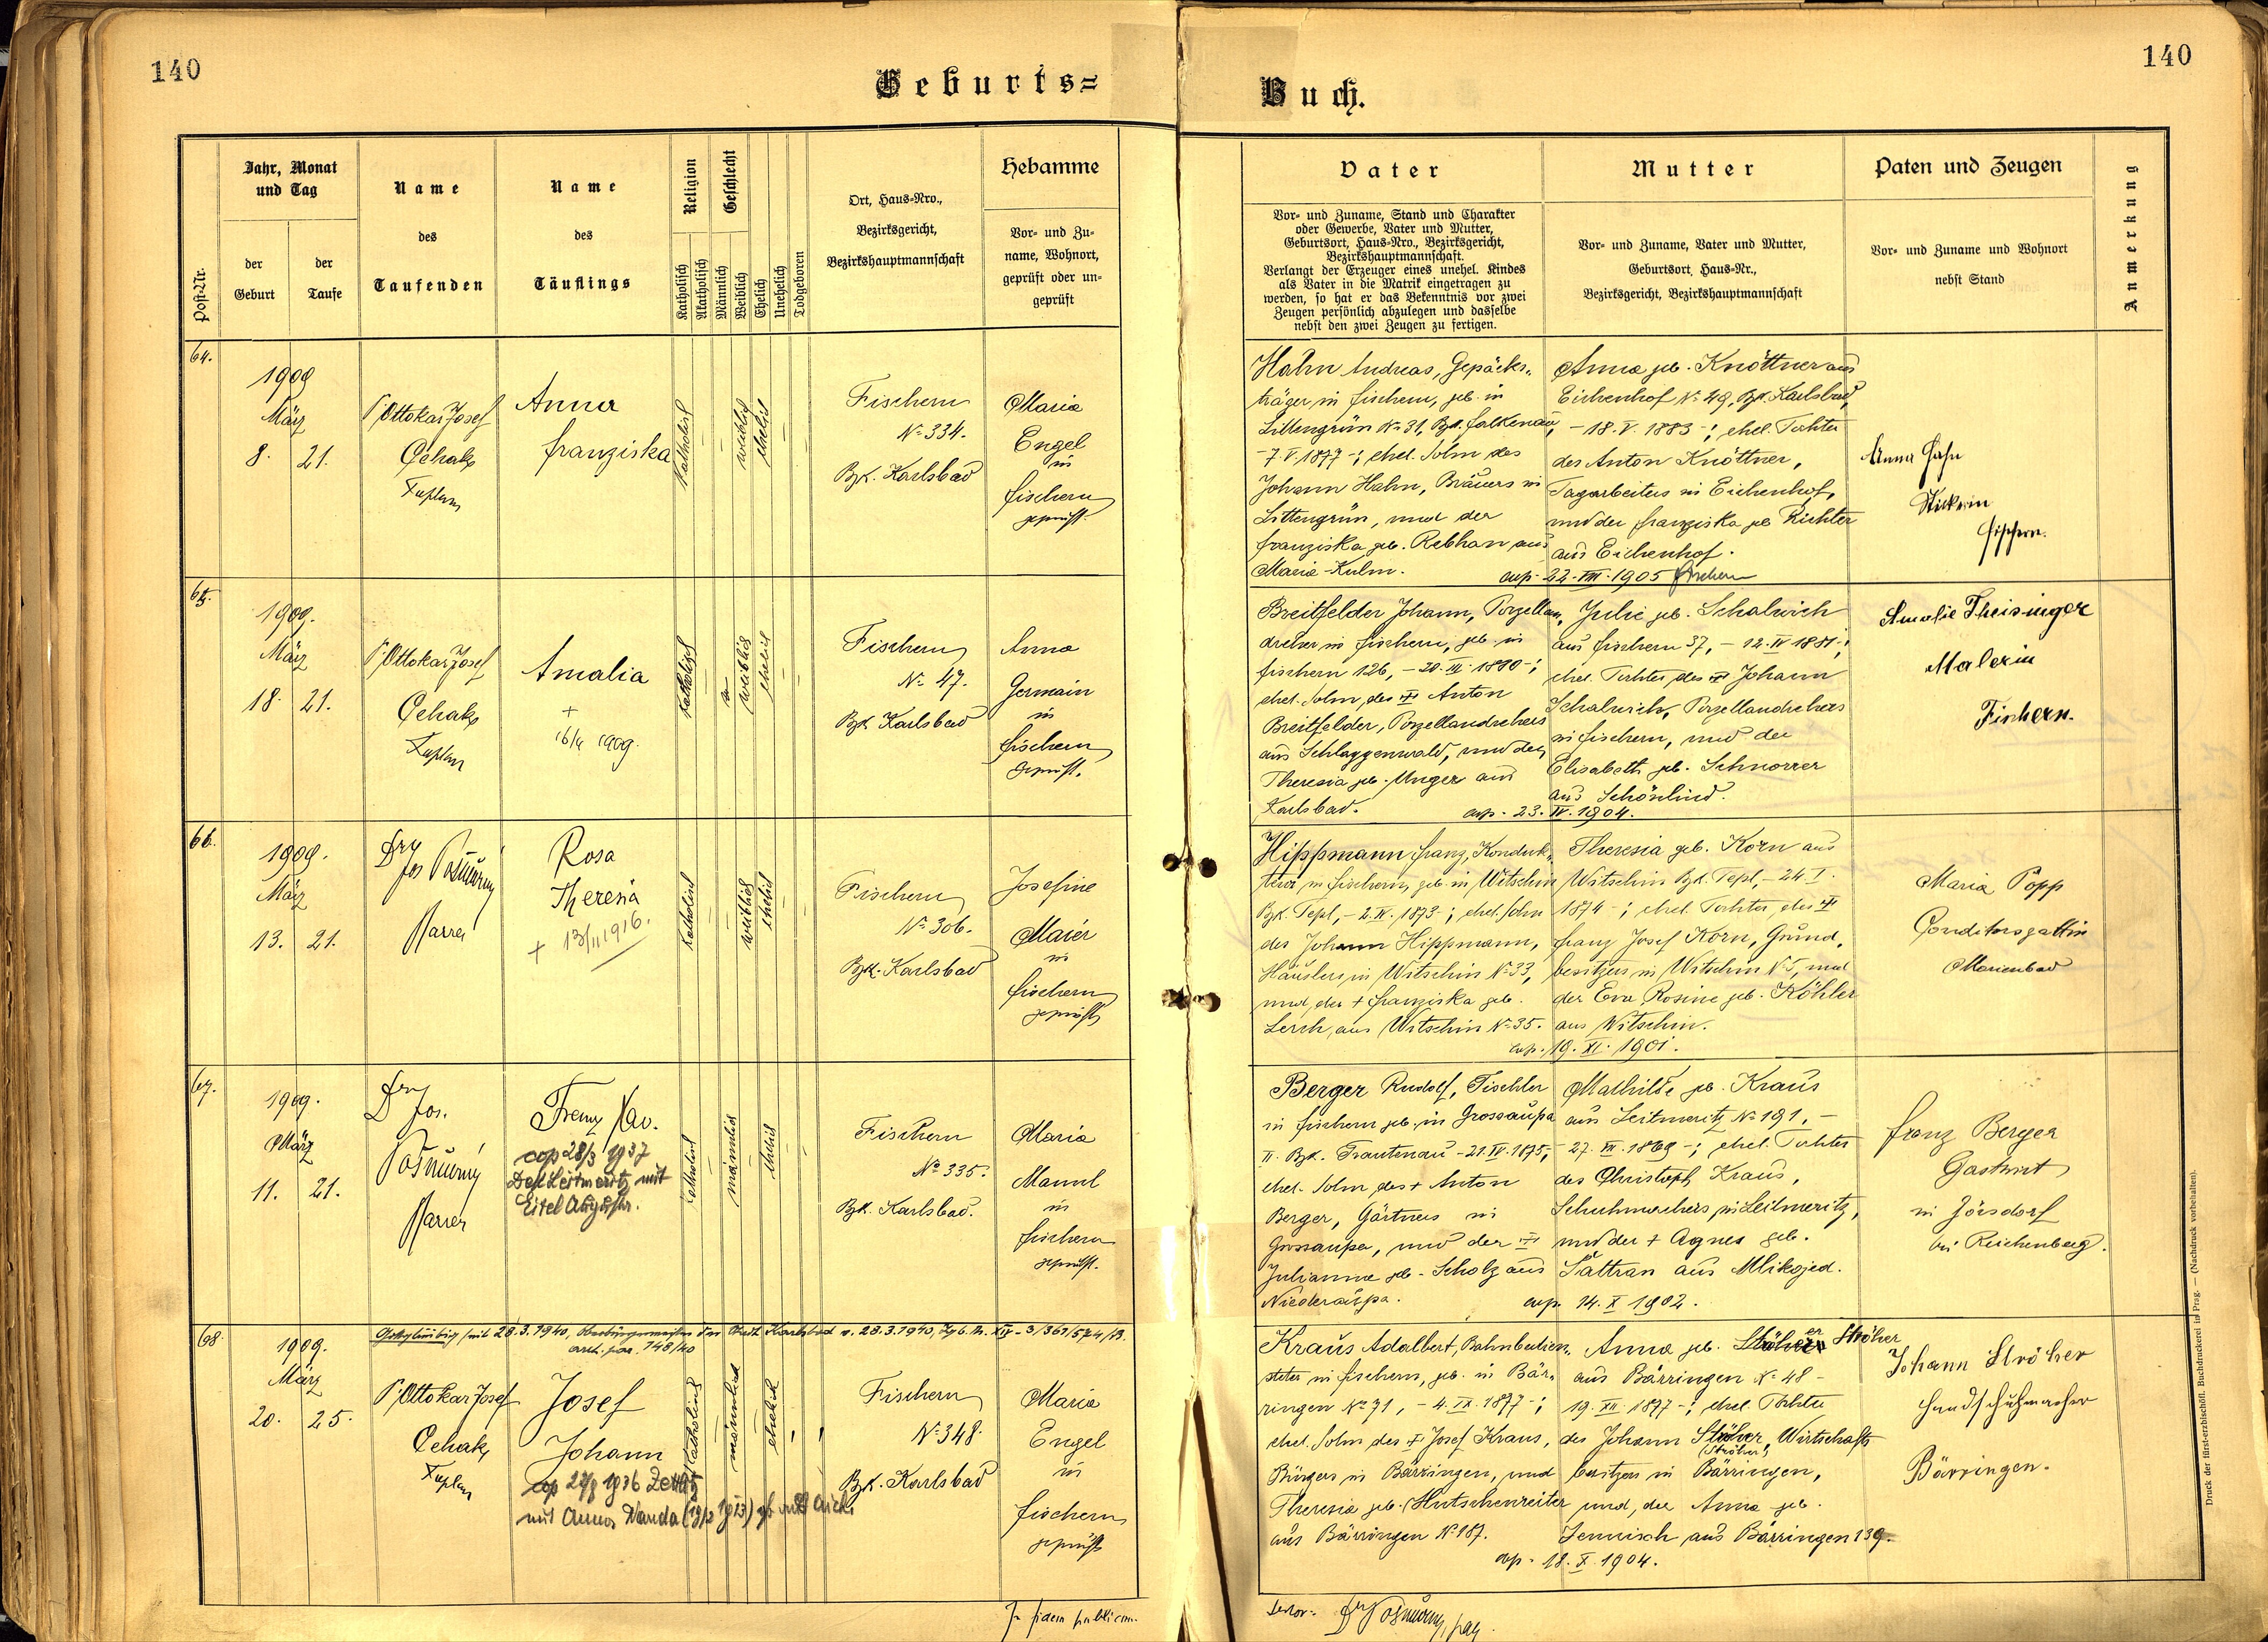 140
140
Geburts=
Buch.
Post-Nr.
Jahr, Monat
und Tag
der
Geburt
der
Taufe
Name
des
Taufenden
Name
des
Täuflings
Religion
Katholisch
Akatholisch
Geschlecht
Männlich
Weiblich
Ehelich
Unehelich
Todgeboren
Ort, Haus-Nro.,
Bezirksgericht,
Bezirkshauptmannschaft
Hebamme
Vor- und Zu-
name, Wohnort,
geprüft oder un-
geprüft
Vater
Vor- und Zuname, Stand und Charakter
oder Gewerbe, Vater und Mutter,
Geburtsort, Haus-Nro., Bezirksgericht,
Bezirkshauptmannschaft.
Verlangt der Erzeuger eines unehel. Kindes
als Vater in die Matrik eingetragen zu
werden, so hat er das Bekenntnis vor zwei
Zeugen persönlich abzulegen und dasselbe
nebst den zwei Zeugen zu fertigen.
Mutter
Vor- und Zuname, Vater und Mutter,
Geburtsort, Haus-Nr.,
Bezirksgericht, Bezirkshauptmannschaft
Paten und Zeugen
Vor- und Zuname und Wohnort
nebst Stand
Anmerkung
64.
1909
März
8. 21.
P. Ottokar Josef
Cehak
Kaplan
Anna
Franziska
katholisch
weiblich
ehelich
Fischern
No 334.
Bzk. Karlsbad
Maria
Engel
in
Fischern
geprüft.
Hahn Andreas, Gepäcks-
träger in Fischern, geb. in
Littengrün No 31, Bzk. Falkenau,
-7.V.1877-; ehel. Sohn des
Johann Hahn, Bräuers in
Littengrün, und der
Franziska geb. Rebhan aus
Maria-Kulm.
Anna geb. Knöttner aus
Eichenhof No 49, Bzk. Karlsbad,
-18.V.1883-; ehel. Tochter
des Anton Knöttner,
Tagarbeiters in Eichenhof,
und der Franziska geb. Richter
aus Eichenhof.
cop. 22.VIII.1905 Fischern
Anna Hahn
Fischern.
65.
1909.
März
18. 21.
P. Ottokar Josef
Cehak
Kaplan
Amalia
+
16/4 1909.
katholisch
weiblich
ehelich
Fischern
No 47.
Bzk. Karlsbad
Anna
Germain
in
Fischern
geprüft.
Breitfelder Johann, Porzellan-
dreher in Fischern, geb. in
Fischern 126, -20.III.1880-;
ehel. Sohn des + Anton
Breitfelder, Porzellandrehers
aus Schlaggenwald, und der
Theresia geb. Unger aus
Karlsbad.
Julie geb. Schalwich
aus Fischern 37, -12.IV.1881-;
ehel. Tochter des + Johann
Schalwich, Porzellandrehers
in Fischern, und der
Elisabeth geb. Schnorrer
aus Schönlind.
cop. 23.IV.1904.
Amalie Theisinger
Malerin
Fischern.
66.
1909.
März
13. 21.
Dr
Jos Pošmourný
Pfarrer
Rosa
Theresia
+ 13/II 1916.
katholisch
weiblich
ehelich
Fischern
No 306.
Bzk. Karlsbad
Josefine
Maier
in
Fischern
geprüft
Hippmann Franz, Konduk-
teur in Fischern, geb. in Witschin
Bzk. Tepl, -2.IV.1873-; ehel. Sohn
des Johann Hippmann,
Häuslers in Witschin No 33,
und der + Franziska geb.
Lerch, aus Witschin No 35.
Theresia geb. Korn aus
Witschin Bzk. Tepl, -24.I.
1874-; ehel. Tochter des +
Franz Josef Korn, Grund-
besitzers in Witschin No 5, und
der Eva Rosine geb. Köhler
aus Witschin.
cop. 19.XI.1901.
Maria Popp
Conditorsgattin
Marienbad
67.
1909.
März
11. 21.
Dr
Jos.
Pošmourný
Pfarrer
Franz Xav.
cop 28/3 1937
Dek Leitmeritz mit
Eitel
katholisch
männlich
ehelich
Fischern
No 335.
Bzk. Karlsbad.
Maria
Mannl
in
Fischern
geprüft.
Berger Rudolf, Tischler
in Fischern geb. in Grossaupa
II. Bzk. Trautenau -21.IV.1875-;
ehel. Sohn des + Anton
Berger, Gärtners in
Grossaupa, und der +
Julianna geb. Scholz aus
Niederaupa.
Mathilde geb. Kraus
aus Leitmeritz No 191, -
27.III.1869-; ehel. Tochter
des Christoph Kraus,
Schuhmachers in Leitmeritz,
und der + Agnes geb.
Pattran aus Mlikojed.
cop. 14.X.1902.
Franz Berger
Gastwirt
in Jörsdorf
bei Reichenberg.
68.
1909.
März
20. 25.
Gottgläubig seit 28.3.1940, Oberbürgermeister der Stadt Karlsbad v. 28.3.1940,
148/40
P. Ottokar Josef
Cehak
Kaplan
Josef
Johann
cop 1936 Zettlitz
mit Anna Wanda
katholisch
männlich
ehelich
Fischern
No 348.
Bzk. Karlsbad
Maria
Engel
in
Fischern
geprüft
Kraus Adalbert, Bahnbedien-
steter in Fischern, geb. in Bär-
ringen No 71, -4.IX.1877-;
ehel. Sohn des + Josef Kraus,
Bürgers in Bärringen, und
Theresia geb. Hutschenreiter
aus Bärringen No 187.
Anna geb. Ströher
aus Bärringen No 48-
19.XII.1877-; ehel. Tochter
des Johann Stöher, Wirtschafts
(Ströher)
besitzers in Bärringen,
und der Anna geb.
Jennisch aus Bärringen 139.
cop. 18.X.1904.
Johann Ströher
Handschuhmacher
Bärringen.
In fidem publicam.
Dr Pošmourný, par.
Druck der fürst-erzbischöfl. Buchdruckerei in Prag. — (Nachdruck vorbehalten).